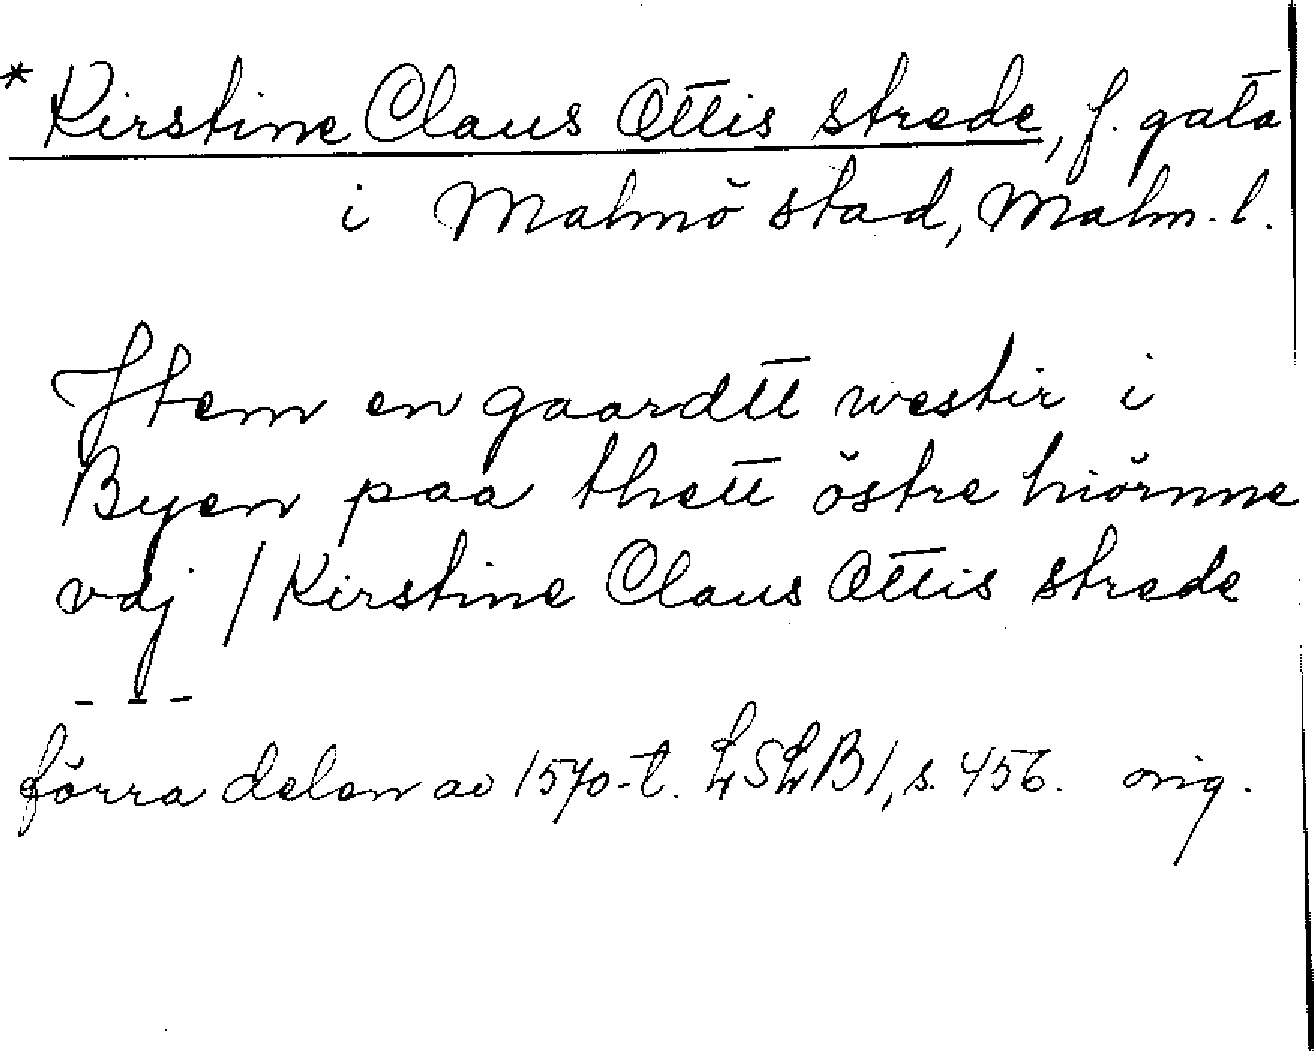 * Kirstine Claus Ottis strede, f. gata
i Malmö stad, Malm. l.
Item en gaardtt westir i
Byen paa thett östre hiörnne
vdj / Kirstine Claus Ottis strede
- - -
förra delen av 1570-t. LSLB 1, s. 456. orig.